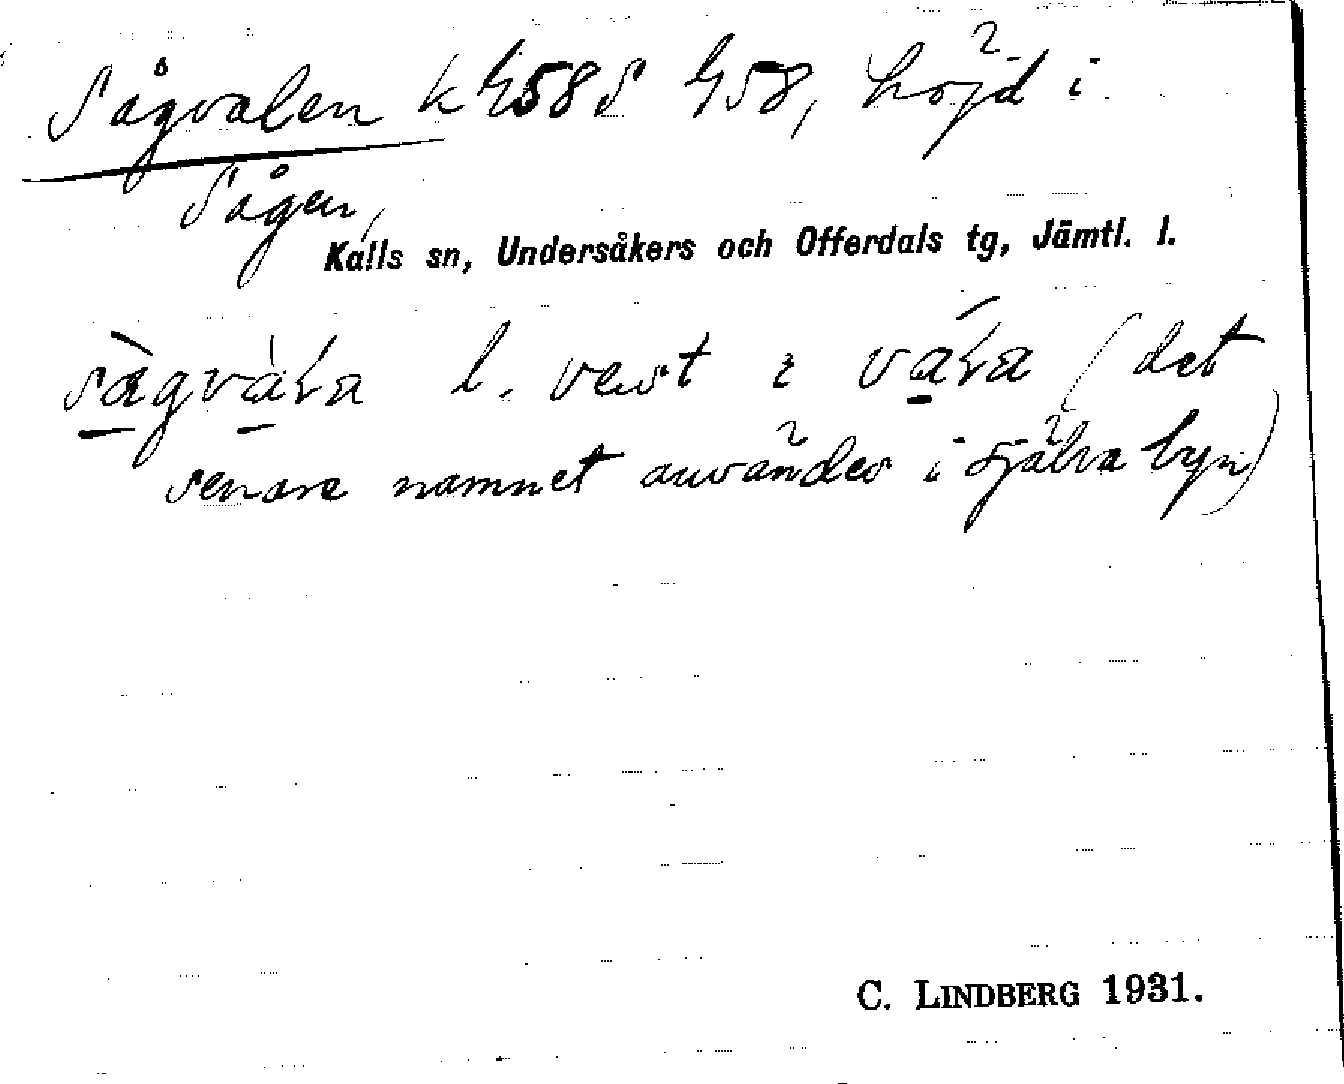 Sågvalen k 458 S 458, höjd i
Sågen,
Kalls sn, Undersåkers och Offerdals tg, Jämtl. l.
l. vant : (det
senare namnet användes i själva byn)
C. LINDBERG 1931.